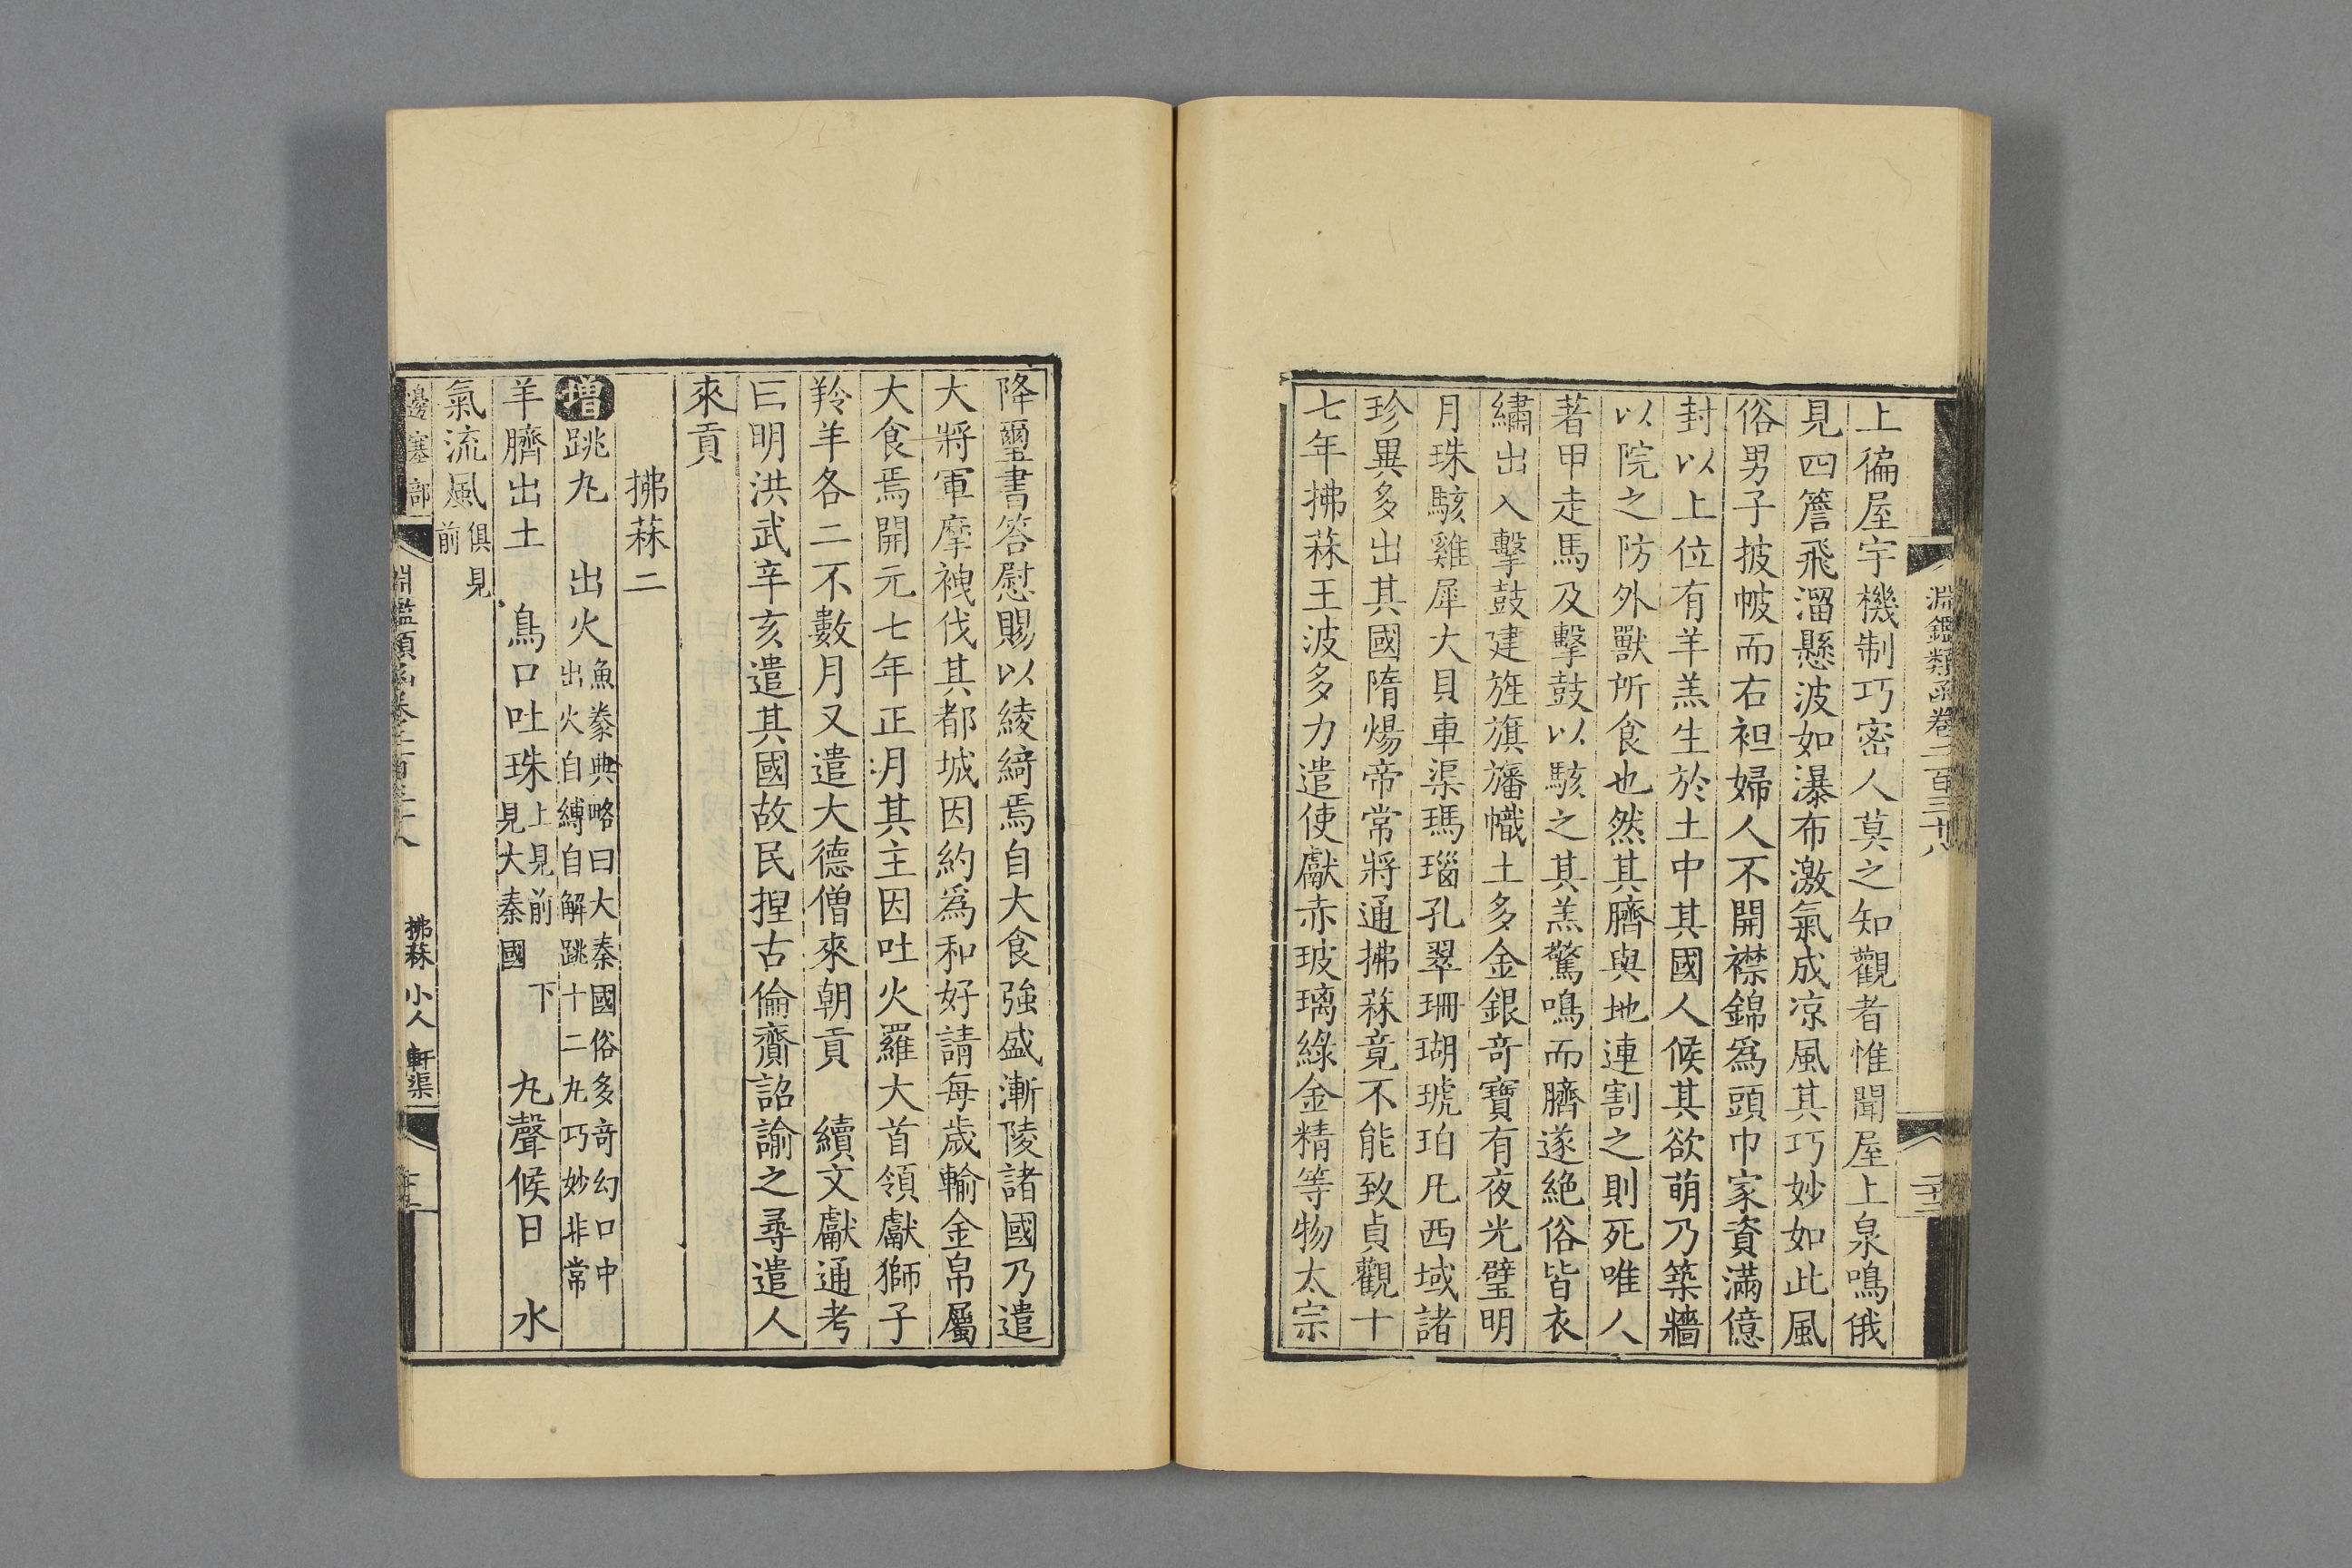 淵鑑類函卷二百三十八
上徧屋宇機制巧密人莫之知觀者惟聞屋上泉鳴俄
見四簷飛溜懸波如瀑布激氣成凉風其巧妙如此風
俗男子披帔而右袒婦人不開襟錦爲頭巾家資滿億
封以上位有羊羔生於土中其國人候其欲萌乃築牆
以院之防外獸所食也然其臍與地連割之則死唯人
著甲走馬及擊鼓以駭之其羔驚鳴而臍遂絕俗皆衣
繡出入擊鼓建旌旗旛幟土多金銀奇寶有夜光璧明
月珠駭雞犀大貝車渠瑪瑙孔翠珊瑚琥珀凡西域諸
珍異多出其國隋煬帝常將通拂菻竟不能致貞觀十
七年拂菻王波多力遣使獻赤玻璃綠金精等物太宗
降璽書答慰賜以綾綺焉自大食強盛漸陵諸國乃遣
大將軍摩栧伐其都城因約爲和好請每歲輸金帛屬
大食焉開元七年正月其主因吐火羅大首領獻獅子
羚羊各二不數月又遣大德僧來朝貢 續文獻通考
曰明洪武辛亥遣其國故民捏古倫齎詔諭之尋遣人
來貢
拂菻二
增跳丸 出火魚豢典略曰大秦國俗多奇幻口中出火自縛自解跳十二丸巧妙非常
羊臍出土 鳥口吐珠上見前下見大秦國 丸聲候日 水
氣流風俱見前
邊塞部 淵鑑類函卷二百三十八 拂菻 小人 軒渠